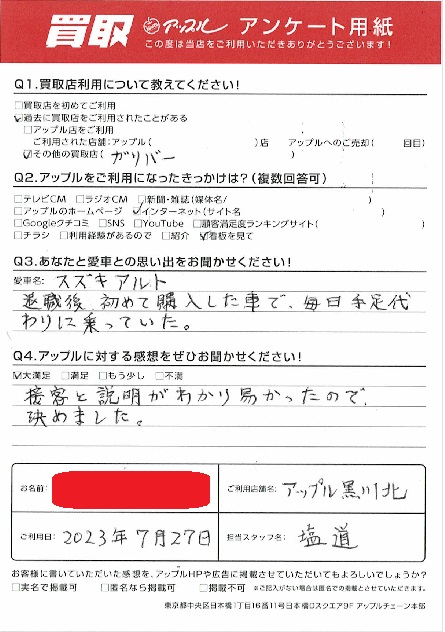 買取 アップル アンケート用紙
この度は当店をご利用いただきありがとうございます!
Q1.買取店利用について教えてください!
□買取店を初めてご利用
☑過去に買取店をご利用されたことがある
□アップル店をご利用
ご利用された店舗:アップル( )店 アップルへのご売却( )回目
☑その他の買取店( ガリバー )
Q2.アップルをご利用になったきっかけは?(複数回答可)
□テレビCM □ラジオCM □新聞・雑誌(媒体名/ )
□アップルのホームページ ☑インターネット(サイト名 )
□Googleクチコミ □SNS □YouTube □顧客満足度ランキングサイト( )
□チラシ □利用経験があるので □紹介 ☑看板を見て
Q3.あなたと愛車との思い出をお聞かせください!
愛車名: スズキアルト
退職後、初めて購入した車で、毎日手足代
わりに乗っていた。
Q4.アップルに対する感想をぜひお聞かせください!
☑大満足 □満足 □もう少し □不満
接客と説明がわかり易かったので、
決めました。
お名前:
ご利用店舗名: アップル黒川北
ご利用日: 2023年7月27日
担当スタッフ名: 塩道
お客様に書いていただいた感想を、アップルHPや広告に掲載させていただいてもよろしいでしょうか?
□実名で掲載可 □匿名なら掲載可 □掲載不可 ※ご記入がない場合は匿名での掲載とさせていただきます。
東京都中央区日本橋1丁目16番11号日本橋Dスクエア9F アップルチェーン本部